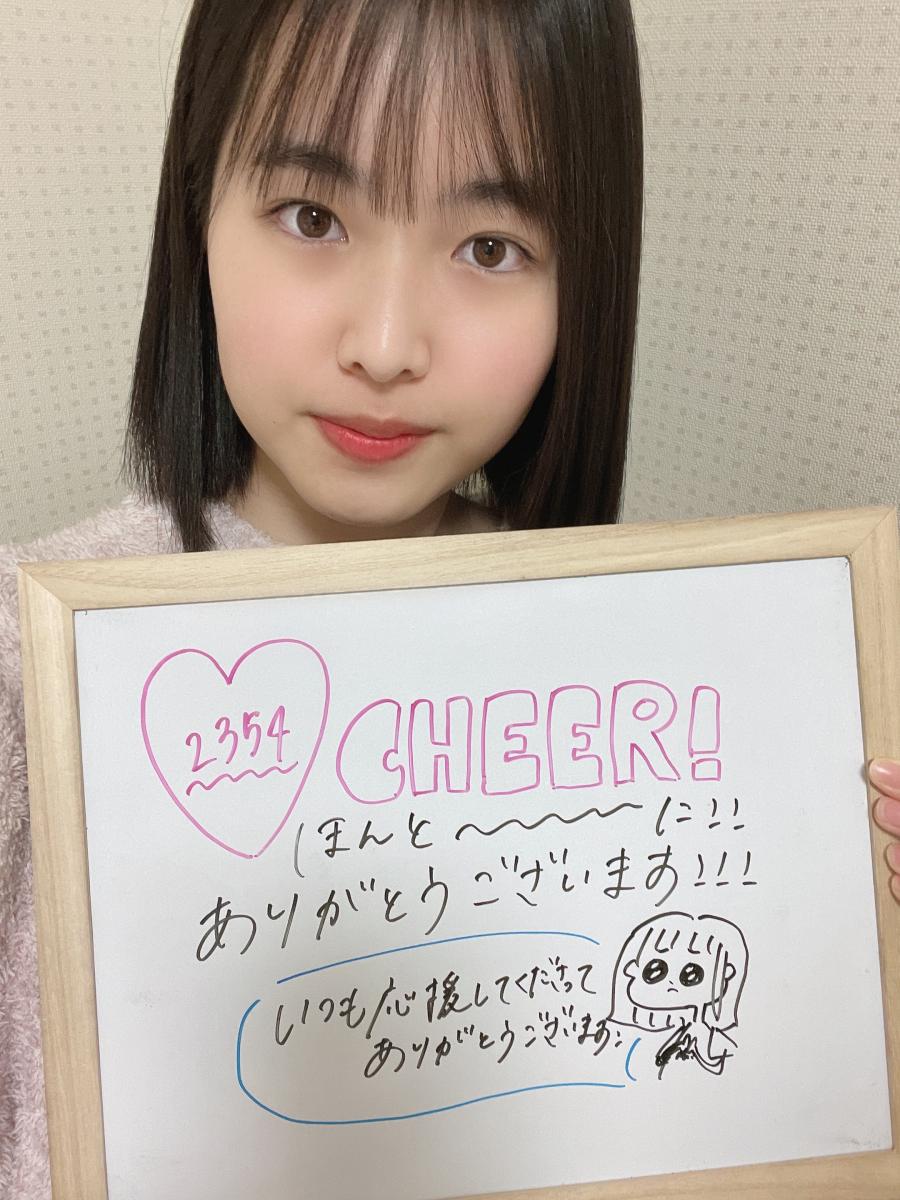 2354
CHEER!
ほんと〜〜〜に!!
ありがとうございます!!!
いつも応援してくださって
ありがとうございます: